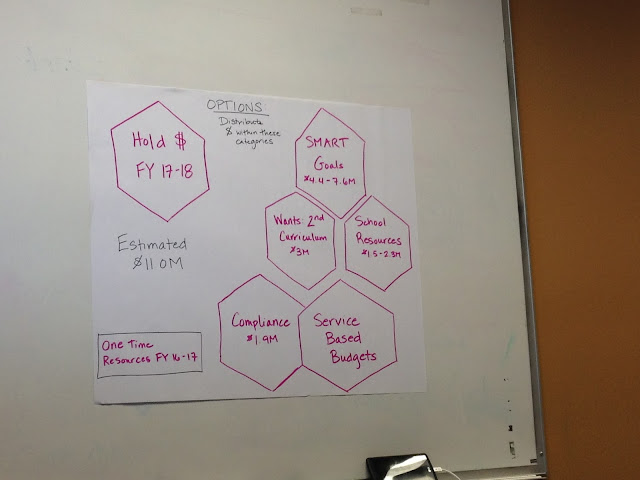 OPTIONS
Distribute
$ within these
categories
Hold $
FY 17-18
SMART
Goals
$4.4-7.6M
Wants: 2nd
Curriculum
$3M
School
Resources
$1.5-2.3M
Estimated
$11.0M
Compliance
$1.9M
Service
Based
Budgets
One Time
Resources FY 16-17